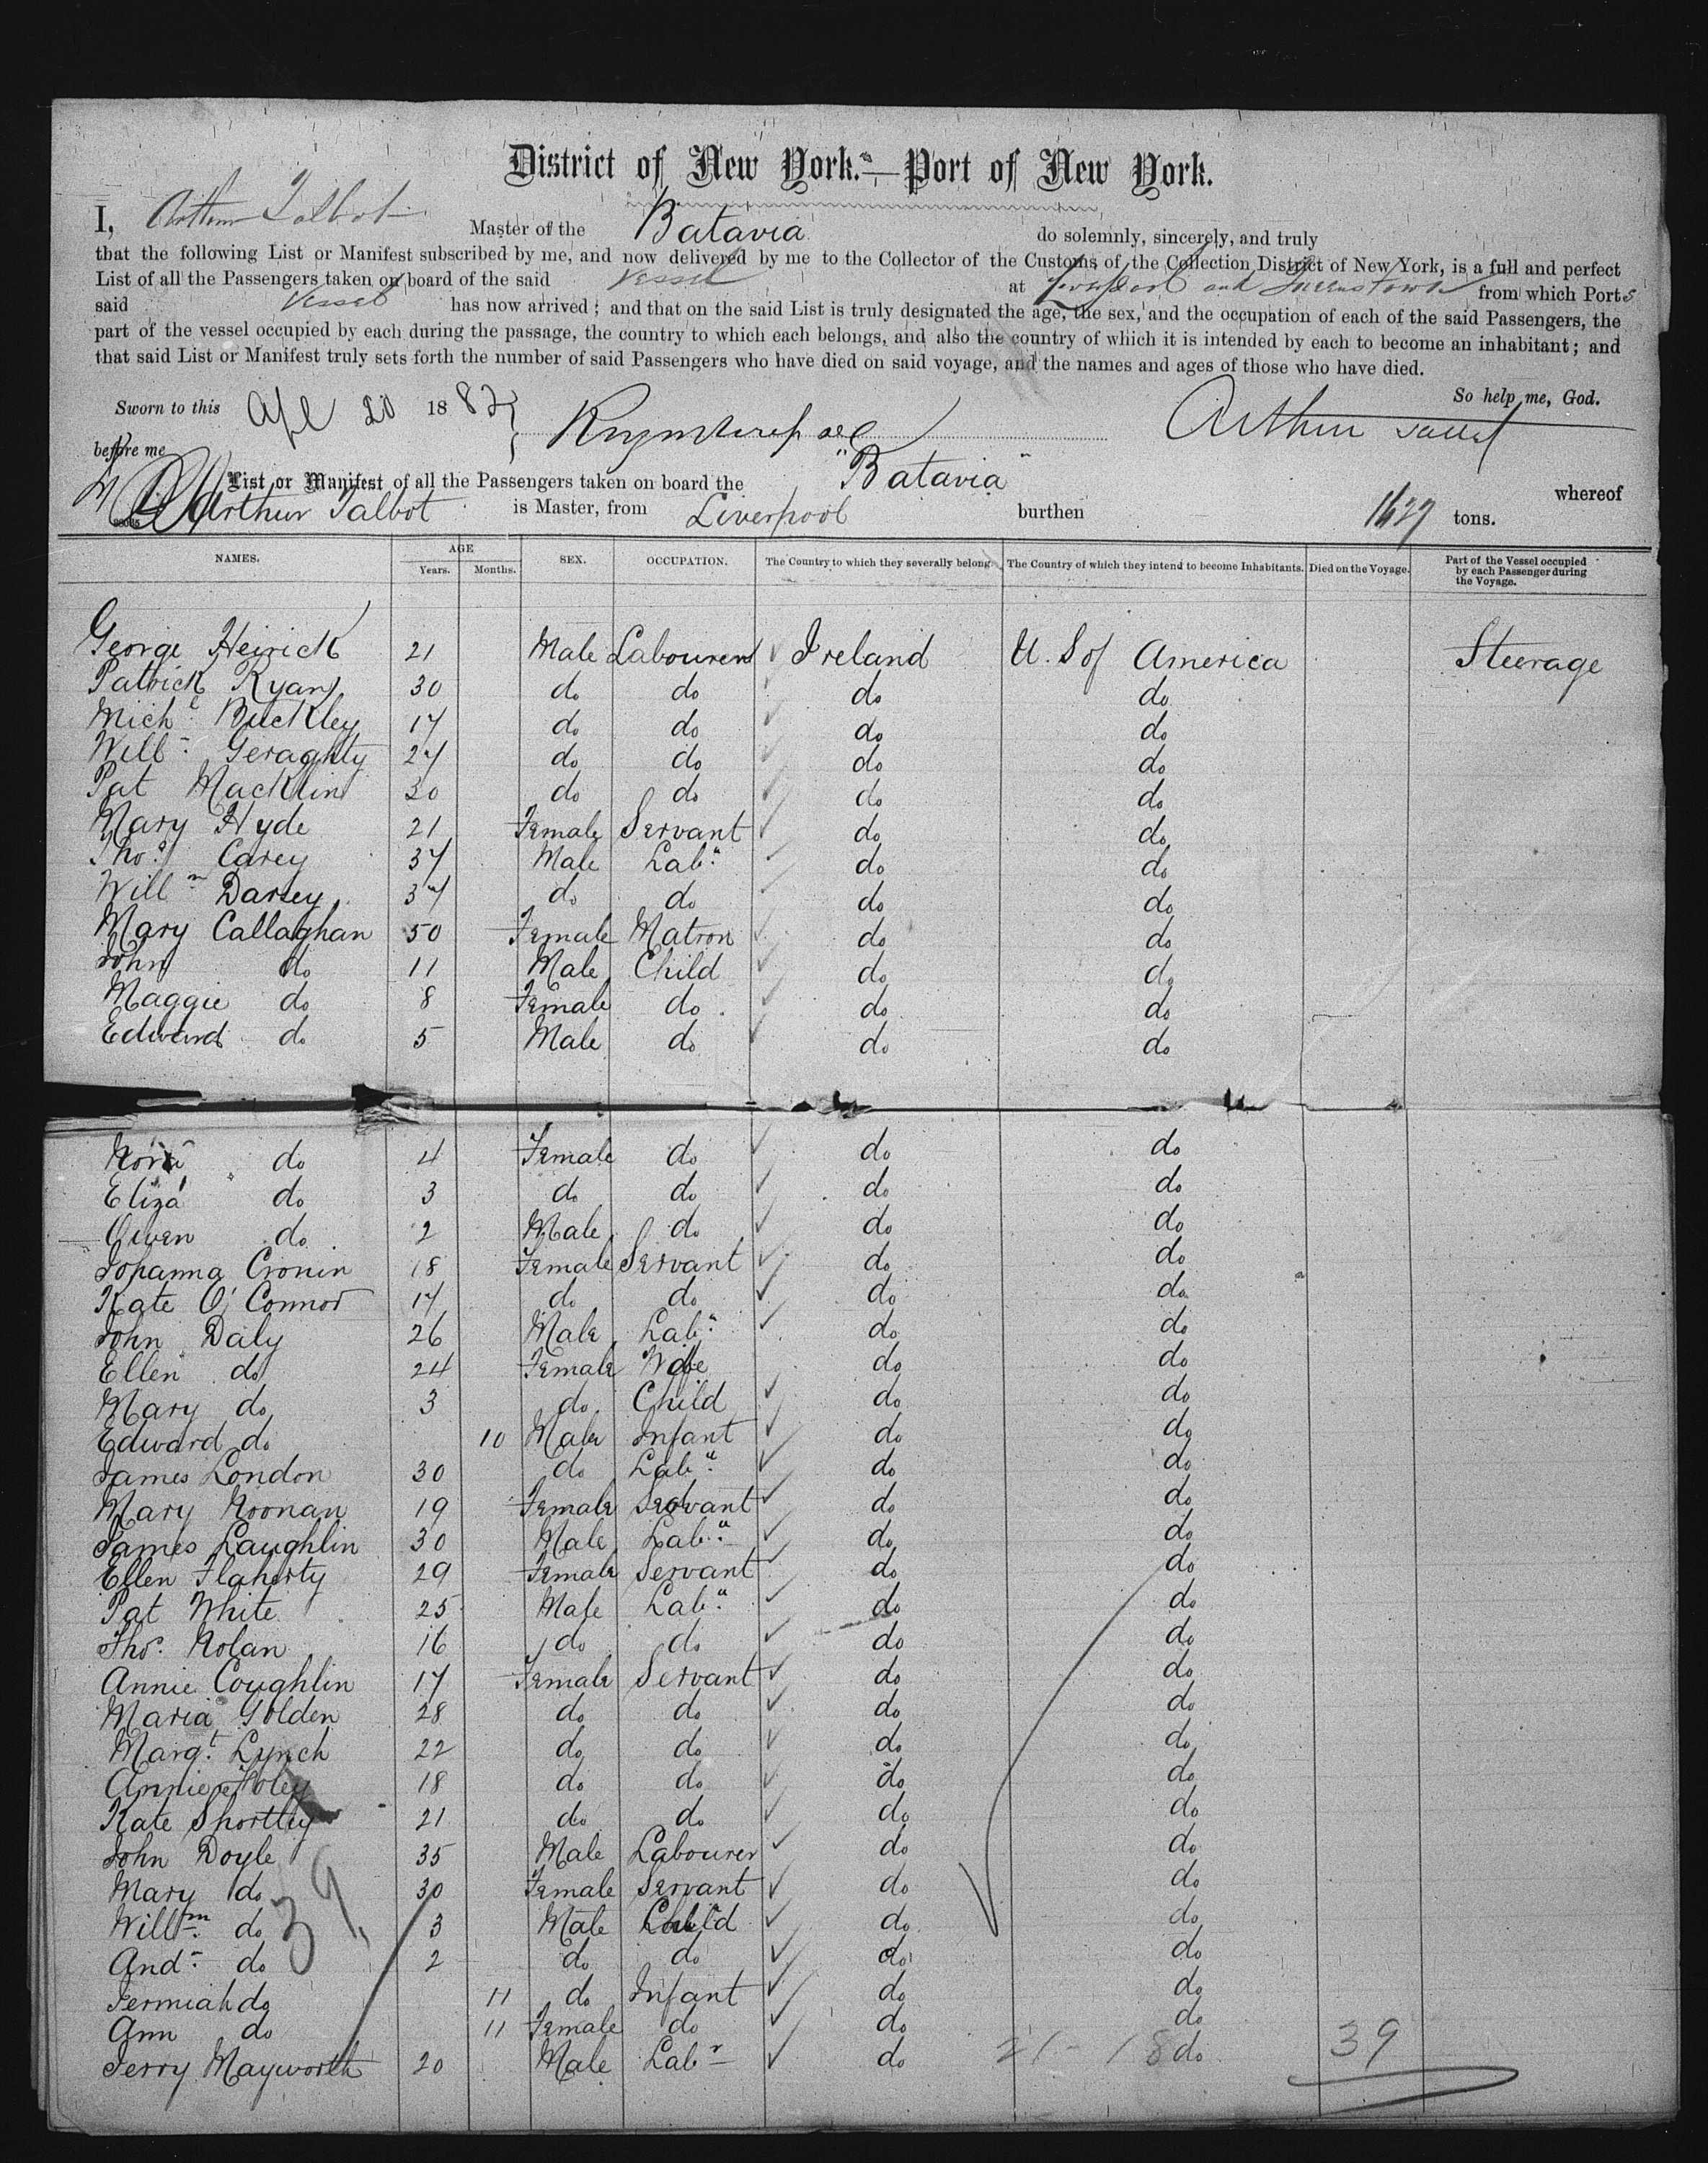 District of New York.—Port of New York.
I, Arthur Talbot Master of the Batavia do solemnly, sincerely, and truly
that the following List or Manifest subscribed by me, and now delivered by me to the Collector of the Customs of the Collection District of New York, is a full and perfect
List of all the Passengers taken on board of the said Vessel at Liverpool and Queenstown from which Ports
said Vessel has now arrived; and that on the said List is truly designated the age, the sex, and the occupation of each of the said Passengers, the
part of the vessel occupied by each during the passage, the country to which each belongs, and also the country of which it is intended by each to become an inhabitant; and
that said List or Manifest truly sets forth the number of said Passengers who have died on said voyage, and the names and ages of those who have died.
So help me, God.
Sworn to this Apl 20 1882 Arthur Talbot
before me
List or Manifest of all the Passengers taken on board the "Batavia" whereof
Arthur Talbot is Master, from Liverpool burthen 1627 tons.
NAMES. AGE Years. Months. SEX. OCCUPATION. The Country to which they severally belong. The Country of which they intend to become Inhabitants. Died on the Voyage. Part of the Vessel occupied by each Passenger during the Voyage.
George Heirick 21 Male Labourer Ireland U. S of America Steerage
Patrick Ryan 30 do do do do
Michl Buckley 17 do do do do
Will Geraghty 27 do do do do
Pat Macklin 30 do do do do
Mary Hyde 21 Female Servant do do
Thos Carey 37 Male Labr do do
Willm Darsey 37 do do do do
Mary Callaghan 50 Female Matron do do
John do 11 Male Child do do
Maggie do 8 Female do do do
Edward do 5 Male do do do
Nora do 4 Female do do do
Eliza do 3 do do do do
Owen do 2 Male do do do
Johanna Cronin 18 Female Servant do do
Kate O'Connor 17 do do do do
John Daly 26 Male Labr do do
Ellen do 24 Female Wife do do
Mary do 3 do Child do do
Edward do 10 Male Infant do do
James London 30 do Labr do do
Mary Noonan 19 Female Servant do do
James Laughlin 30 Male Labr do do
Ellen Flaherty 29 Female Servant do do
Pat White 25 Male Labr do do
Thos. Nolan 16 do do do do
Annie Coughlin 17 Female Servant do do
Maria Golden 28 do do do do
Margt. Lynch 22 do do do do
Annie Foley 18 do do do do
Kate Shortley 21 do do do do
John Doyle 35 Male Labourer do do
Mary do 30 Female Servant do do
Willm do 3 Male Child do do
And do 2 do do do do
Jermiah do 11 do Infant do do
Ann do 11 Female do do do
Jerry Mayworth 20 Male Labr do do
39
21 - 18 39